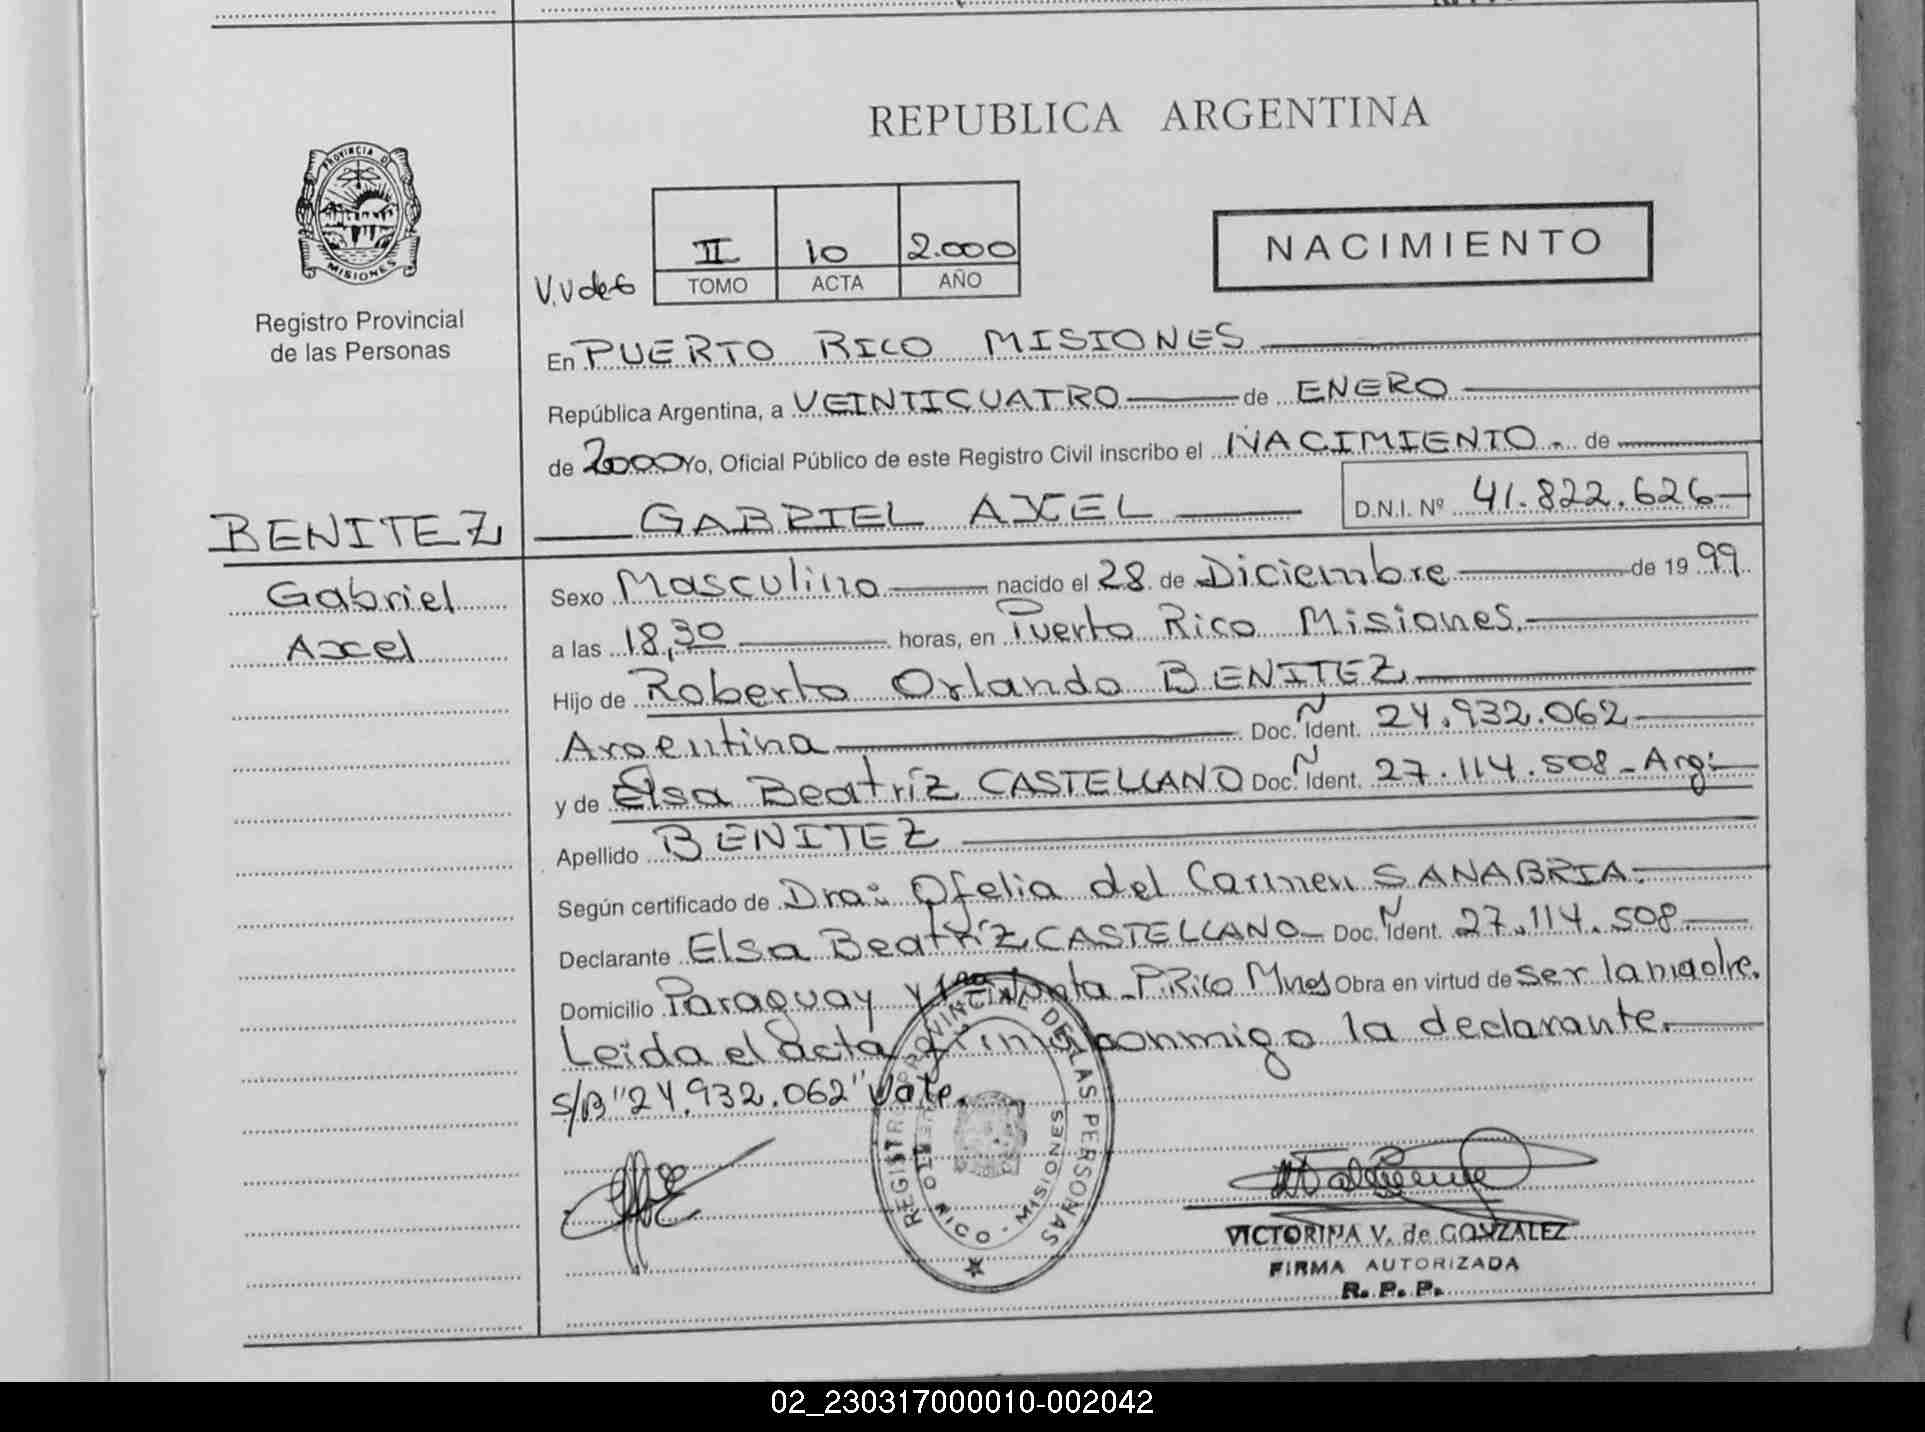 REPUBLICA ARGENTINA
PROVINCIA D
MISIONES
Registro Provincial
de las Personas
II 10 2.000
TOMO ACTA AÑO
V.V de G
NACIMIENTO
En PUERTO RICO MISIONES
República Argentina, a VEINTICUATRO de ENERO
de 2000 Yo, Oficial Público de este Registro Civil inscribo el NACIMIENTO.- de
BENITEZ GABRIEL AXEL D.N.I. Nº 41.822.626
Gabriel
Axel
Sexo Masculino nacido el 28 de Diciembre de 19 99
a las 18,30 horas, en Puerto Rico Misiones.
Hijo de Roberto Orlando BENITEZ
Argentina Doc. Ñ Ident. 24.932.062
y de Elsa Beatríz CASTELLANO Doc. Ñ Ident. 27.114.508 - Arg:
Apellido BENITEZ
Según certificado de Dra: Ofelia del Carmen SANABRIA.
Declarante Elsa Beatríz CASTELLANO Doc. Ñ Ident. 27.114.508.
Domicilio Paraguay y P.Rico Mnes Obra en virtud de ser la madre.
Leida el acta firma conmigo la declarante.
S/B "24.932.062" Vale.
REGISTRO PROVINCIAL DE LAS PERSONAS
PUERTO RICO - MISIONES
VICTORINA V. de GONZALEZ
FIRMA AUTORIZADA
R. P. P.
02_230317000010-002042